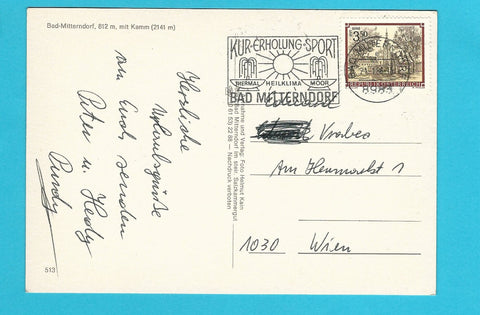 Bad-Mitterndorf, 812 m, mit Kamm (2141 m)
Herzliche
Urlaubsgrüße
an Euch senden
Peter u. Hedy
Pundy
513
KUR·ERHOLUNG·SPORT
THERMAL HEILKLIMA MOOR
BAD MITTERNDORF
3.50
REPUBLIK ÖSTERREICH
8983
Aufnahme und Verlag: Foto Helmut Kain
Bad Mitterndorf im steir. Salzkammergut
Nachdruck verboten
Vrabec
Am Heumarkt 1
1030 Wien